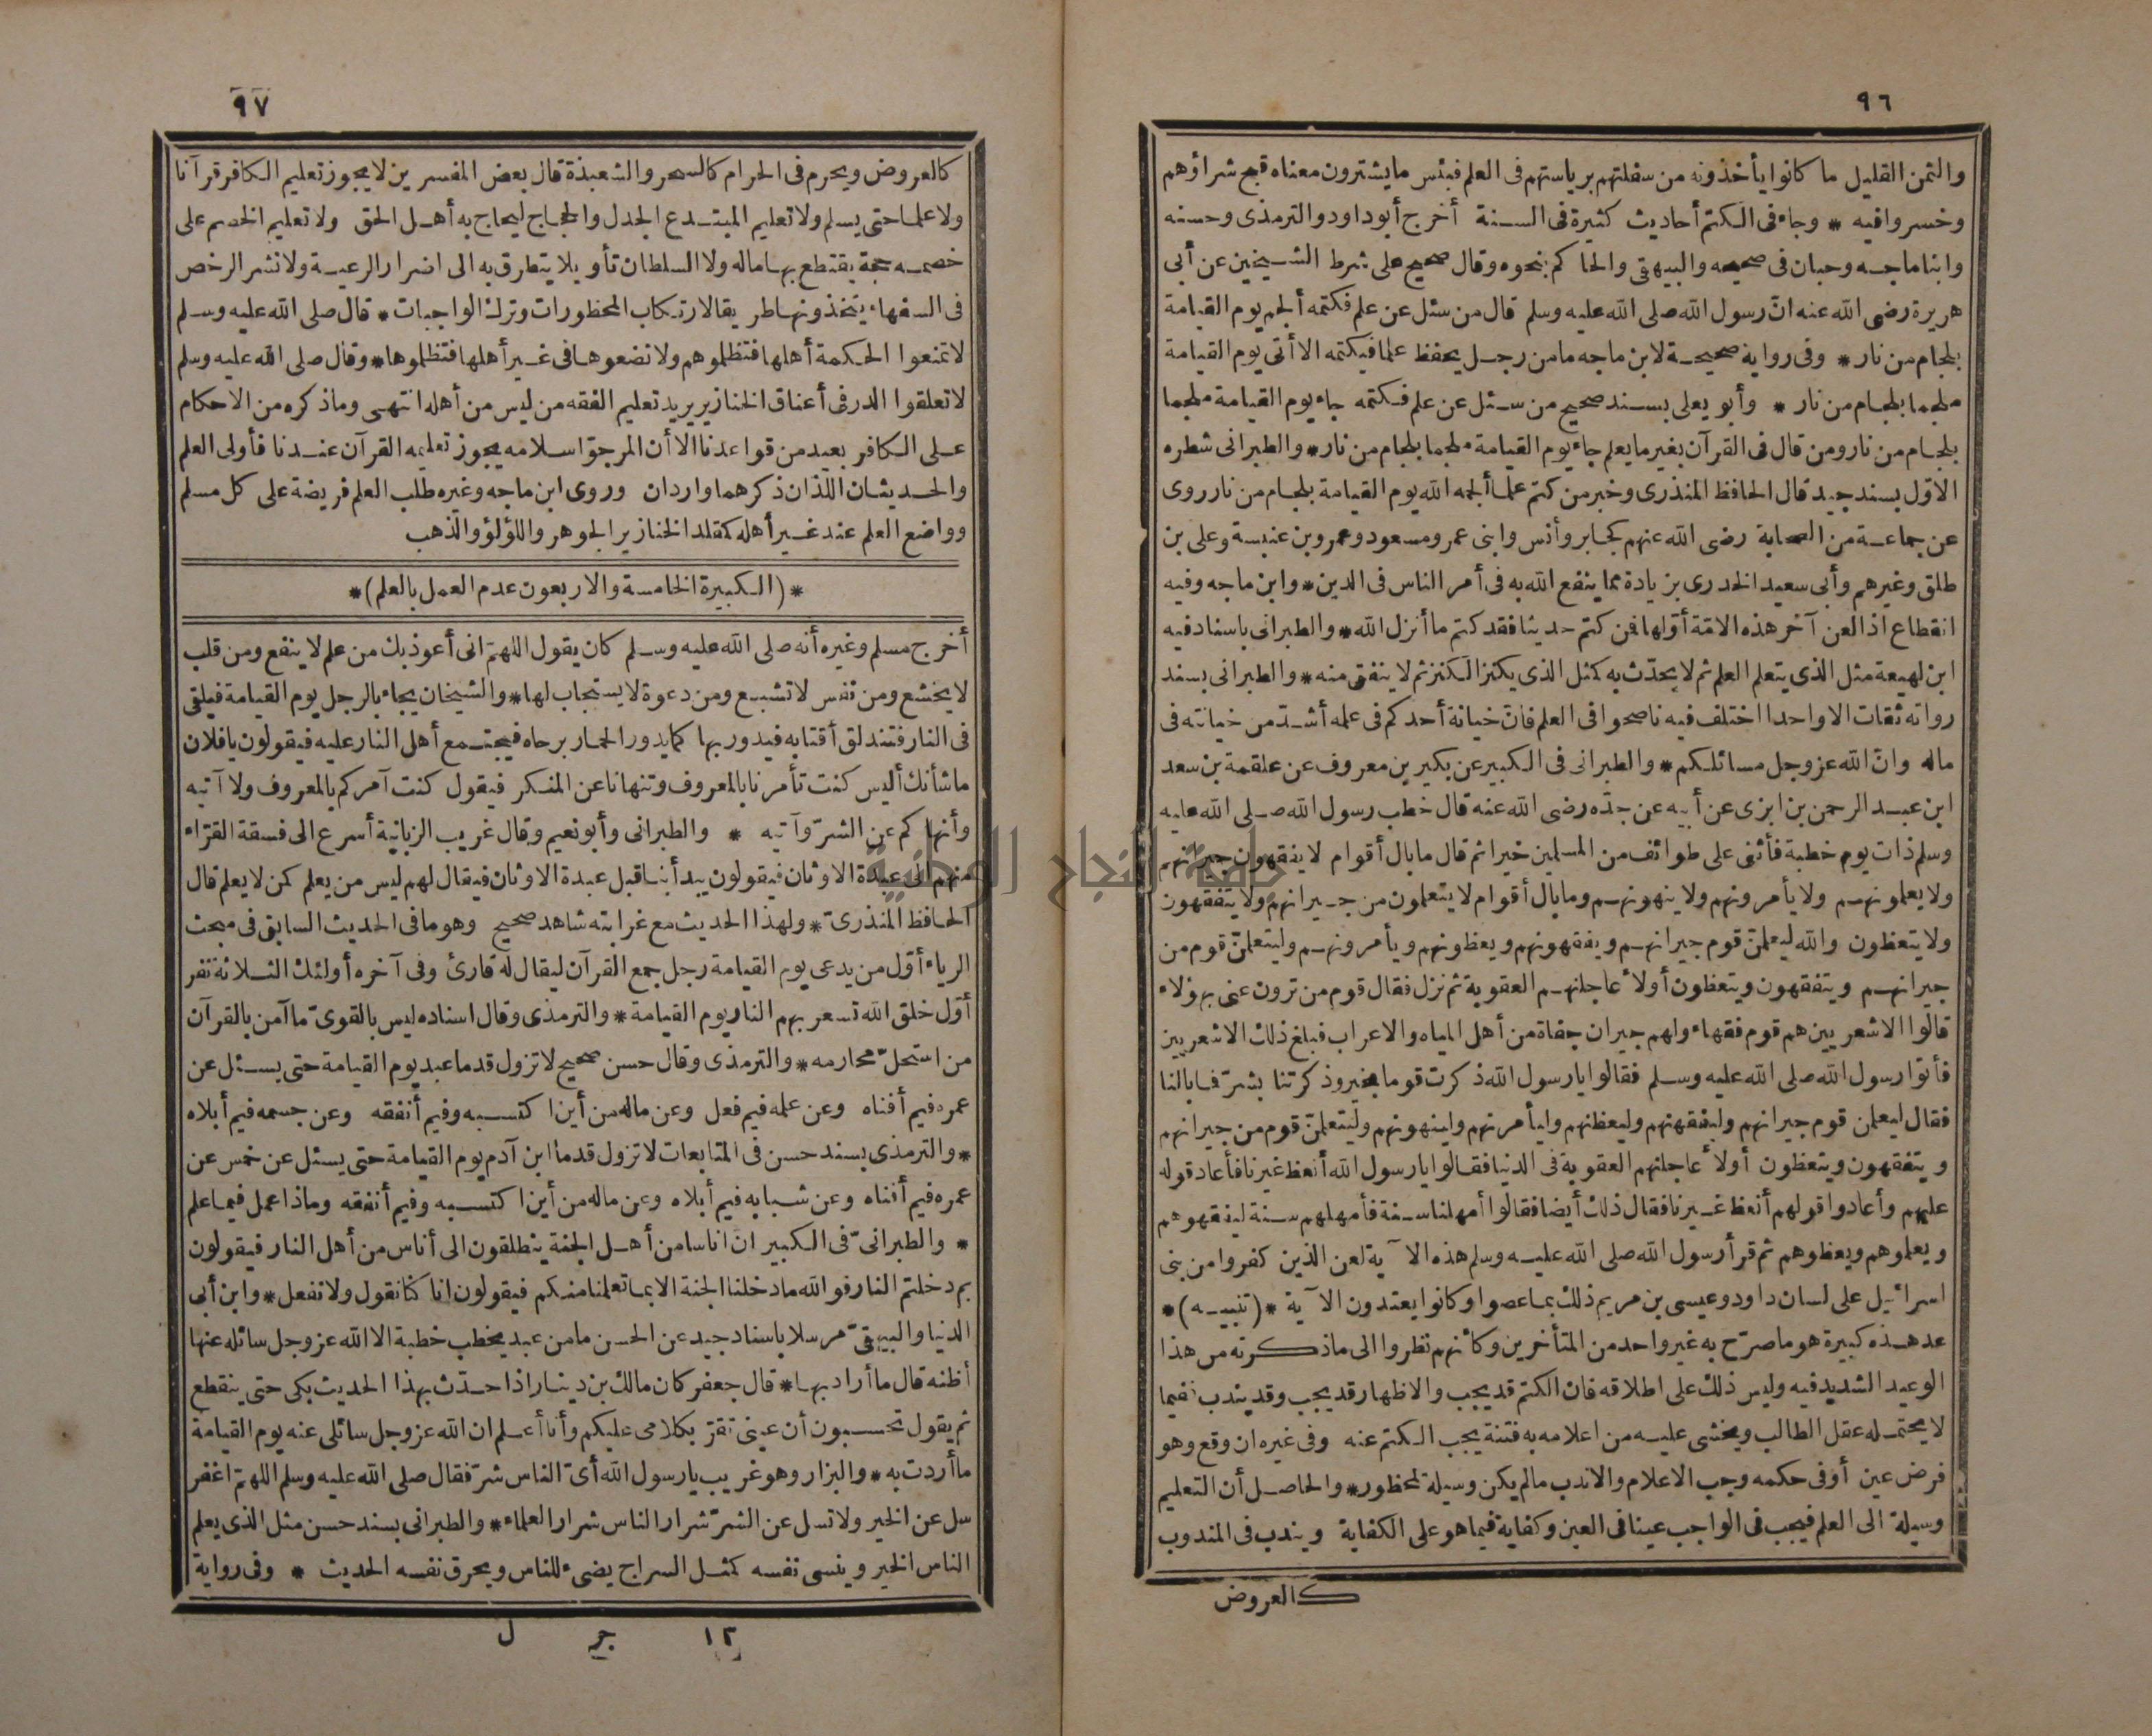 ٩٦
والثمن القليل ما كانوا يأخذونه من سفلتهم برياستهم فى العلم فبئس ما يشترون معناه قبح شراؤهم
وخسروا فيه * وجاء فى الكتم أحاديث كثيرة فى السنة أخرج أبوداود والترمذى وحسنه
وابنا ماجه وحبان فى صحيحه والبيهقى والحاكم بنحوه وقال صحيح على شرط الشيخين عن أبى
هريرة رضى الله عنه انّ رسول الله صلى الله عليه وسلم قال من سئل عن علم فكتمه ألجم يوم القيامة
بلجام من نار * وفى رواية صحيحة لابن ماجه ما من رجل يحفظ علما فيكتمه الا أتى يوم القيامة
ملجما بلجام من نار * وأبو يعلى بسند صحيح من سئل عن علم فكتمه جاء يوم القيامة ملجما
بلجام من نار ومن قال فى القرآن بغير ما يعلم جاء يوم القيامة ملجما بلجام من نار * والطبرانى شطره
الاوّل بسند جيد قال الحافظ المنذرى وخبر من كتم علما ألجمه الله يوم القيامة بلجام من نار روى
عن جماعة من الصحابة رضى الله عنهم كجابر وأنس وابنى عمر ومسعود وعمرو بن عنبسة وعلى بن
طلق وغيرهم وأبى سعيد الخدرى بزيادة مما ينفع الله به فى أمر الناس فى الدين * وابن ماجه وفيه
انقطاع اذا لعن آخر هذه الامّة أوّلها فمن كتم حديثا فقد كتم ما أنزل الله * والطبرانى باسناد فيه
ابن لهيعة مثل الذى يتعلم العلم ثم لا يحدّث به كمثل الذى يكنز الكنز ثم لا ينفق منه * والطبرانى بسند
رواته ثقات الا واحدا اختلف فيه ناصحوا فى العلم فانّ خيانة أحدكم فى علمه أشدّ من خيانته فى
ماله وانّ الله عز وجل مسائلكم * والطبرانى فى الكبير عن بكير بن معروف عن علقمة بن سعد
ابن عبد الرحمن بن ابزى عن أبيه عن جدّه رضى الله عنه قال خطب رسول الله صلى الله عليه
وسلم ذات يوم خطبة فأثنى على طوائف من المسلمين خيرا ثم قال ما بال أقوام لا يفقهون جيرانهم
ولا يعلمونهم ولا يأمرونهم ولا ينهونهم وما بال أقوام لا يتعلمون من جيرانهم ولا يتفقهون
ولا يتعظون والله ليعلمنّ قوم جيرانهم ويفقهونهم ويعظونهم ويأمرونهم وليتعلمنّ قوم من
جيرانهم ويتفقهون ويتعظون أو لأعاجلنهم العقوبة ثم نزل فقال قوم من ترون عنى بهؤلاء
قالوا الاشعريين هم قوم فقهاء ولهم جيران جفاة من أهل المياه والاعراب فبلغ ذلك الاشعريين
فأتوا رسول الله صلى الله عليه وسلم فقالوا يا رسول الله ذكرت قوما بخير وذكرتنا بشرّ فما بالنا
فقال ليعلمن قوم جيرانهم وليفقهنهم وليعظنهم وليأمرنهم ولينهونهم وليتعلمنّ قوم من جيرانهم
ويتفقهون ويتعظون أو لأعاجلنهم العقوبة فى الدنيا فقالوا يا رسول الله أنعظ غيرنا فأعاد قوله
عليهم وأعادوا قولهم أنعظ غيرنا فقال ذلك أيضا فقالوا أمهلنا سنة فأمهلهم سنة ليفقهوهم
ويعلموهم ويعظوهم ثم قرأ رسول الله صلى الله عليه وسلم هذه الآية لعن الذين كفروا من بنى
اسرائيل على لسان داود وعيسى بن مريم ذلك بما عصوا وكانوا يعتدون الآية *(تنبيه)*
عد هذه كبيرة هو ما صرّح به غير واحد من المتأخرين وكأنهم نظروا الى ما ذكرته من هذا
الوعيد الشديد فيه وليس ذلك على اطلاقه فان الكتم قد يجب والاظهار قد يجب وقد يندب ففيما
لا يحتمله عقل الطالب ويخشى عليه من اعلامه به فتنة يجب الكتم عنه وفى غيره ان وقع وهو
فرض عين أو فى حكمه وجب الاعلام والا ندب ما لم يكن وسيلة لمحظور * والحاصل أن التعليم
وسيلة الى العلم فيجب فى الواجب عينا فى العين وكفاية فيما هو على الكفاية ويندب فى المندوب
كالعروض
٩٧
كالعروض ويحرم فى الحرام كالسحر والشعبذة قال بعض المفسرين لا يجوز تعليم الكافر قرآنا
ولا علما حتى يسلم ولا تعليم المبتدع الجدل والحجاج ليحاج به أهل الحق ولا تعليم الخصم على
خصمه حجة يقتطع بها ماله ولا السلطان تأويلا يتطرق به الى اضرار الرعية ولا نشر الرخص
فى السفهاء يتخذونها طريقا لارتكاب المحظورات وترك الواجبات * قال صلى الله عليه وسلم
لا تمنعوا الحكمة أهلها فتظلموهم ولا تضعوها فى غير أهلها فتظلموها * وقال صلى الله عليه وسلم
لا تعلقوا الدر فى أعناق الخنازير يريد تعليم الفقه من ليس من أهله انتهى وما ذكره من الاحكام
على الكافر بعيد من قواعدنا الا أن المرجوّ اسلامه يجوز تعليمه القرآن عندنا فأولى العلم
والحديثان اللذان ذكرهما واردان وروى ابن ماجه وغيره طلب العلم فريضة على كل مسلم
وواضع العلم عند غير أهله كمقلد الخنازير الجوهر واللؤلؤ والذهب
*(الكبيرة الخامسة والاربعون عدم العمل بالعلم)*
أخرج مسلم وغيره أنه صلى الله عليه وسلم كان يقول اللهمّ انى أعوذ بك من علم لا ينفع ومن قلب
لا يخشع ومن نفس لا تشبع ومن دعوة لا يستجاب لها * والشيخان يجاء بالرجل يوم القيامة فيلقى
فى النار فتندلق أقتابه فيدور بها كما يدور الحمار برحاه فيجتمع أهل النار عليه فيقولون يا فلان
ما شأنك أليس كنت تأمرنا بالمعروف وتنهانا عن المنكر فيقول كنت آمركم بالمعروف ولا آتيه
وأنهاكم عن الشرّ وآتيه * والطبرانى وأبو نعيم وقال غريب الزبانية أسرع الى فسقة القرّاء
منهم الى عبدة الاوثان فيقولون يبدأ بنا قبل عبدة الاوثان فيقال لهم ليس من يعلم كمن لا يعلم قال
الحافظ المنذرىّ * ولهذا الحديث مع غرابته شاهد صحيح وهو ما فى الحديث السابق فى مبحث
الرياء أوّل من يدعى يوم القيامة رجل جمع القرآن ليقال له قارئ وفى آخره أولئك الثلاثة نفر
أوّل خلق الله تسعر بهم النار يوم القيامة * والترمذى وقال اسناده ليس بالقوىّ ما آمن بالقرآن
من استحلّ محارمه * والترمذى وقال حسن صحيح لا تزول قدما عبد يوم القيامة حتى يسئل عن
عمره فيم أفناه وعن علمه فيم فعل وعن ماله من أين اكتسبه وفيم أنفقه وعن جسمه فيم أبلاه
* والترمذى بسند حسن فى المتابعات لا تزول قدما ابن آدم يوم القيامة حتى يسئل عن خمس عن
عمره فيم أفناه وعن شبابه فيم أبلاه وعن ماله من أين اكتسبه وفيم أنفقه وماذا عمل فيما علم
* والطبرانىّ فى الكبير انّ اناسا من أهل الجنة ينطلقون الى أناس من أهل النار فيقولون
بم دخلتم النار فوالله ما دخلنا الجنة الا بما تعلمنا منكم فيقولون انا كنا نقول ولا نفعل * وابن أبى
الدنيا والبيهقىّ مرسلا باسناد جيد عن الحسن ما من عبد يخطب خطبة الا الله عز وجل سائله عنها
أظنه قال ما أراد بها * قال جعفر كان مالك بن دينار اذا حدّث بهذا الحديث بكى حتى ينقطع
ثم يقول تحسبون أن عينى تقرّ بكلامى عليكم وأنا أعلم ان الله عز وجل سائلى عنه يوم القيامة
ما أردت به * والبزار وهو غريب يا رسول الله أىّ الناس شرّ فقال صلى الله عليه وسلم اللهمّ اغفر
سل عن الخير ولا تسل عن الشرّ شرار الناس شرار العلماء * والطبرانى بسند حسن مثل الذى يعلم
الناس الخير وينسى نفسه كمثل السراج يضىء للناس ويحرق نفسه الحديث * وفى رواية
١٢ جر ل